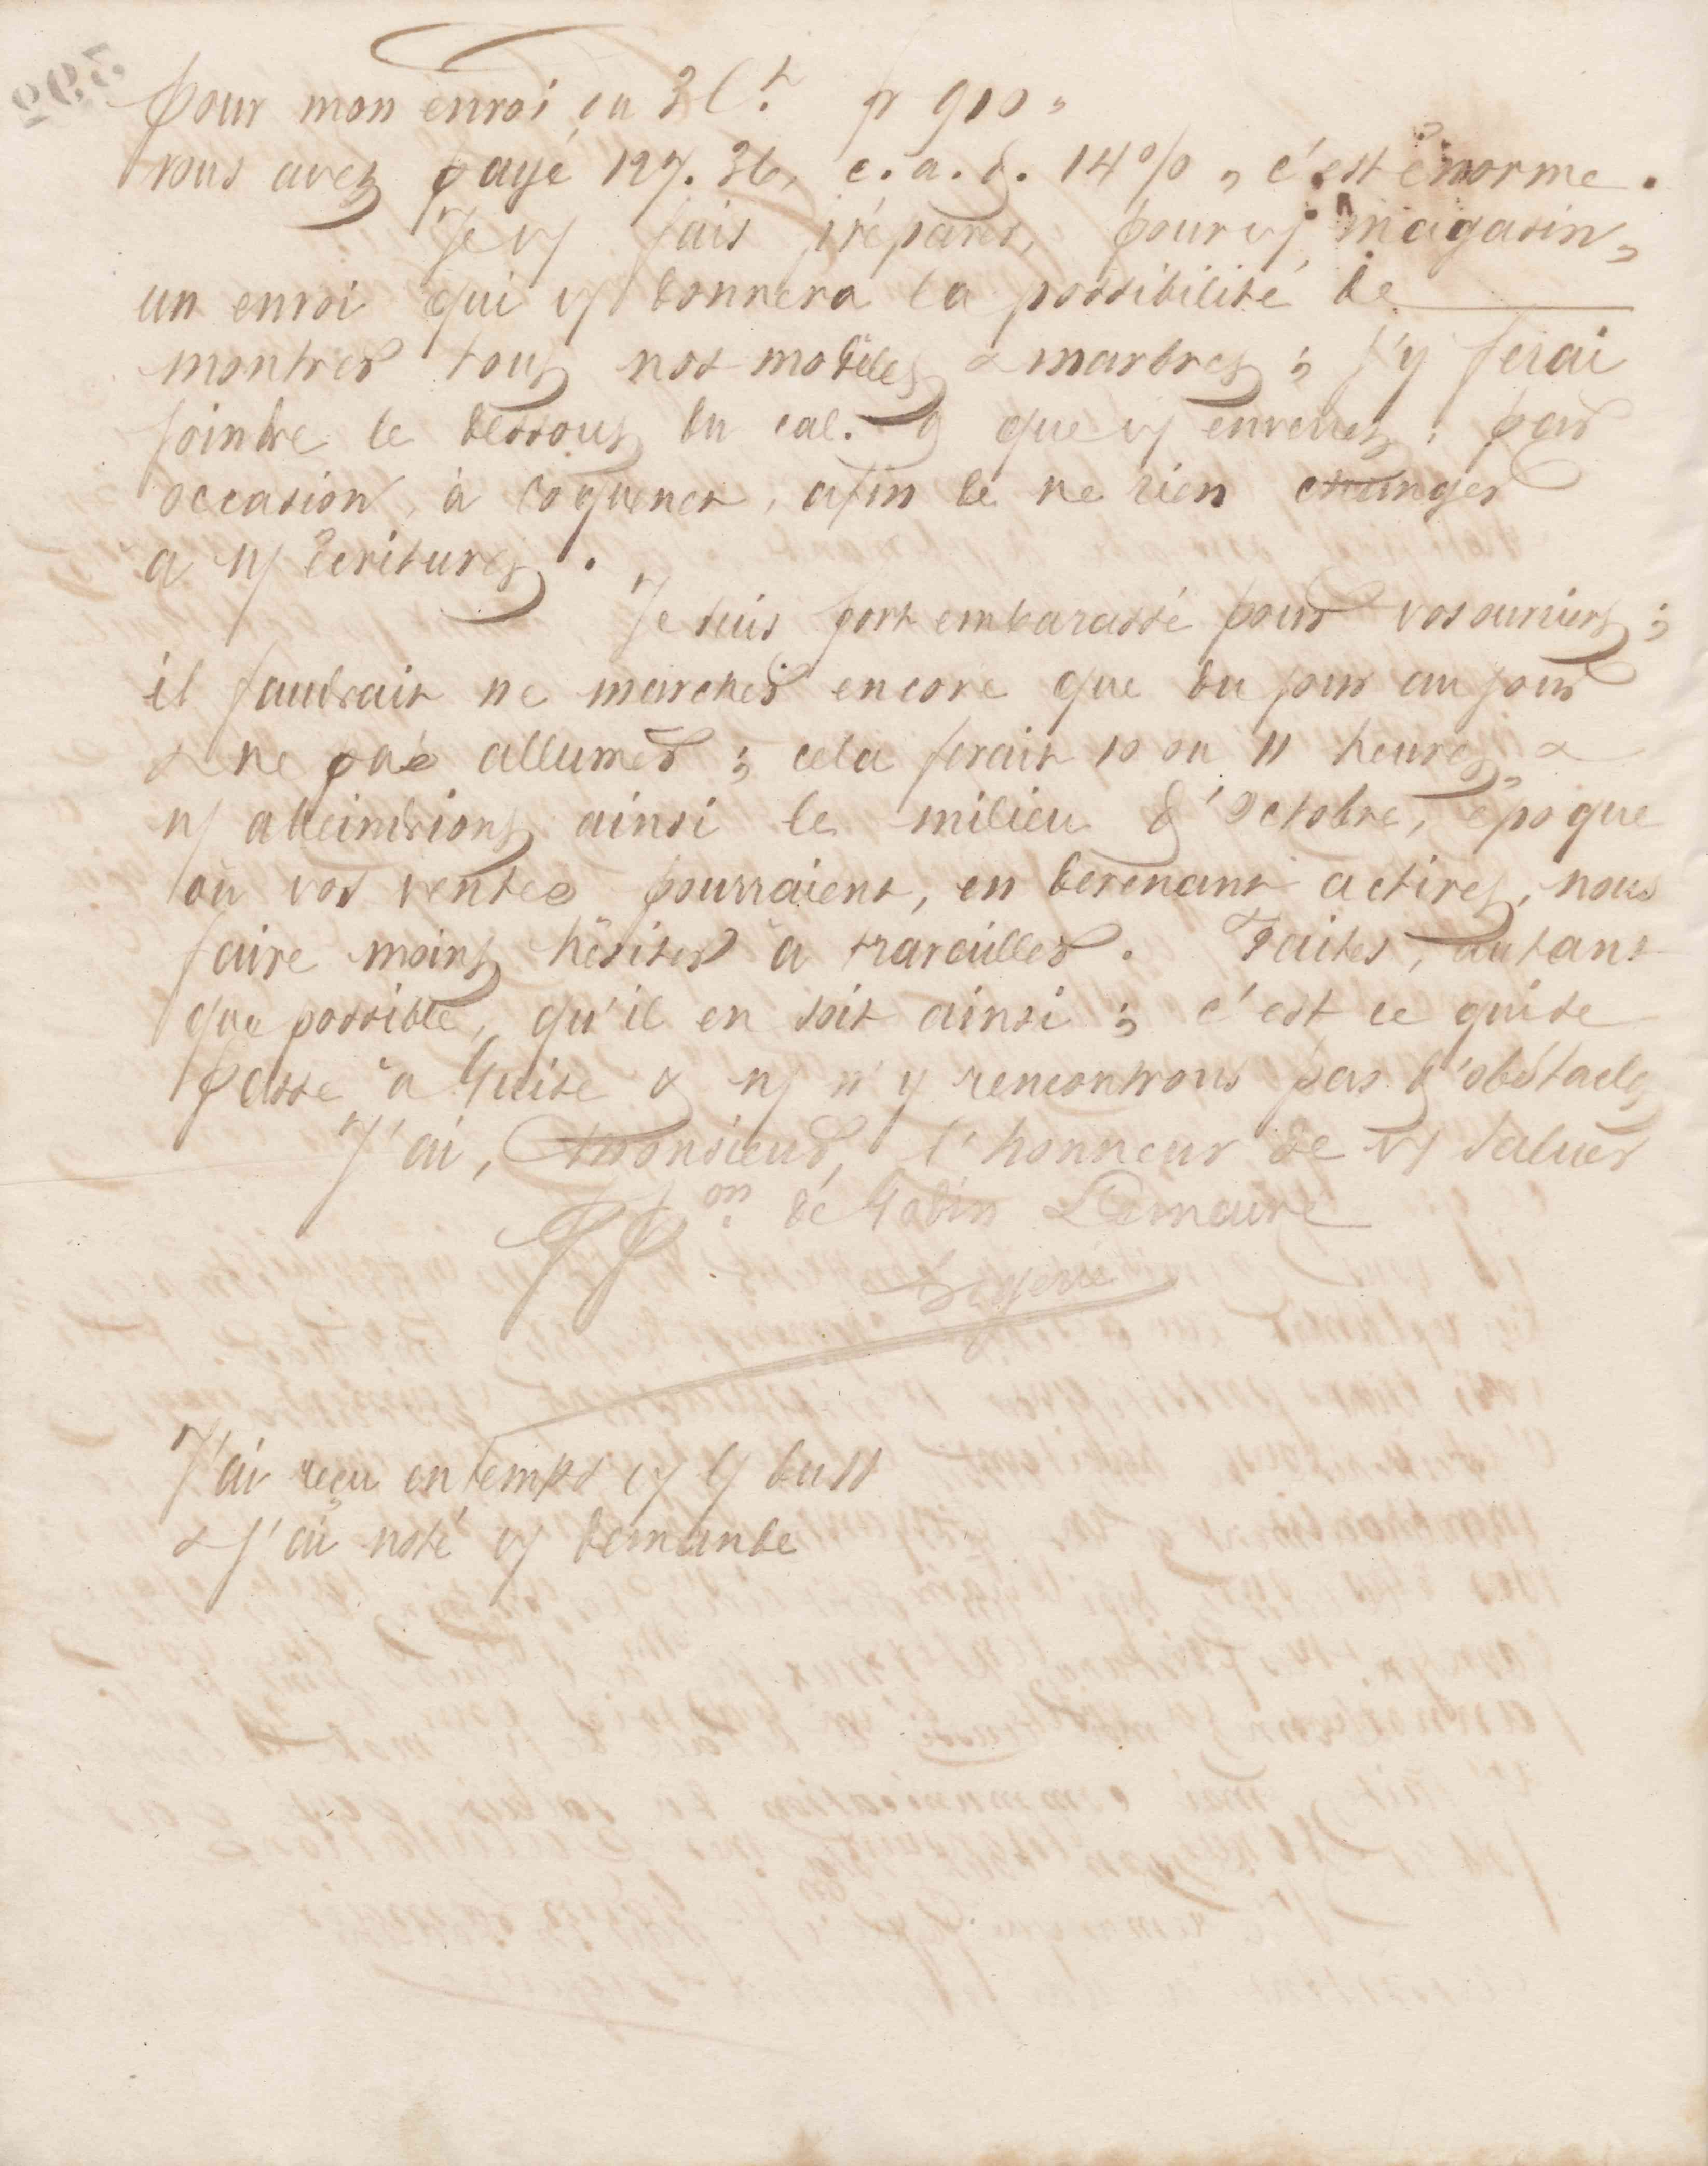 pour mon envoi du 3 Ct. pr 910,
vous avez payé 127.36, c.a.d. 14%, c'est énorme.
Je v/ fais préparer, pour v/ magasin,
un envoi qui v/ donnera la possibilité de
montrer tous nos modèles & marbres ; j'y ferai
joindre le dessous du cal. 9 que v/ enverrez, par
occasion, à Coquenet, afin de ne rien changer
a n/ Ecritures.
Je suis fort embarassé pour vos ouvriers ;
il faudrait ne marcher encore que du jour au jour
& ne pas allumer ; cela ferait 10 ou 11 heures, &
n/ atteindrions ainsi le milieu d'Octobre, époque
où vos ventes pourraient, en devenant actives, nous
faire moins hésiter à travailler. Faites, autant
que possible, qu'il en soit ainsi ; c'est ce qui se
passe à Guise & n/ n'y rencontrons pas d'obstacles
J'ai, Monsieur, l'honneur de v/ saluer
PPon. de Godin Lemaire
J'ai reçu en temps v/ L/ du 11
& j'ai noté v/ demande